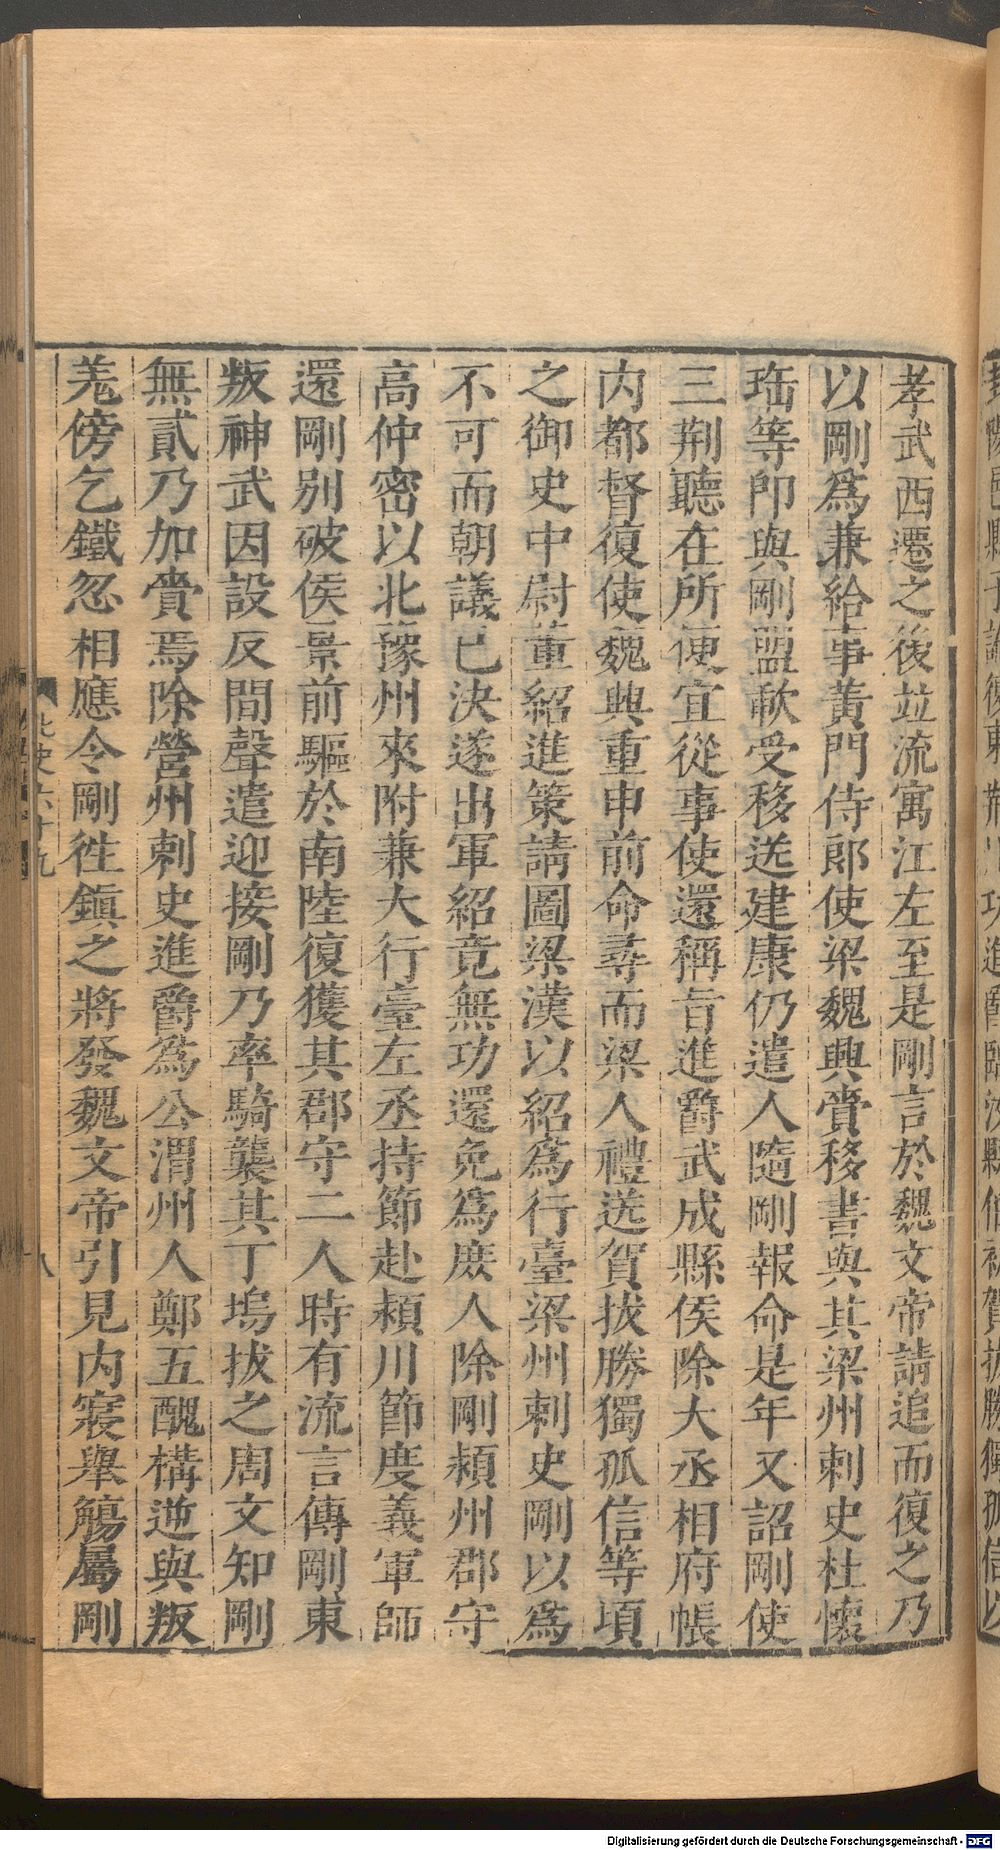 孝武西遷之後竝流寓江左至是剛言於魏文帝請追而復之乃
以剛爲兼給事黃門侍郎使梁魏興賫移書與其梁州刺史杜懷
珤等即與剛盟歃受移送建康仍遣人隨剛報命是年又詔剛使
三荆聽在所便宜從事使還稱旨進爵武成縣侯除大丞相府帳
内都督復使魏興重申前命尋而梁人禮送賀拔勝獨孤信等頃
之御史中尉董紹進策請圖梁漢以紹爲行臺梁州刺史剛以爲
不可而朝議已決遂出軍紹竟無功還免爲庶人除剛潁州郡守
高仲密以北豫州來附兼大行臺左丞持節赴潁川節度義軍師
還剛别破侯景前驅於南陸復獲其郡守二人時有流言傳剛東
叛神武因設反間聲遣迎接剛乃率騎襲其丁塢拔之周文知剛
無貳乃加賞焉除營州刺史進爵爲公渭州人鄭五醜構逆與叛
羌傍乞鐵忽相應令剛徃鎮之將發魏文帝引見内寢舉觴屬剛
北史六十九
八
Digitalisierung gefördert durch die Deutsche Forschungsgemeinschaft - DFG